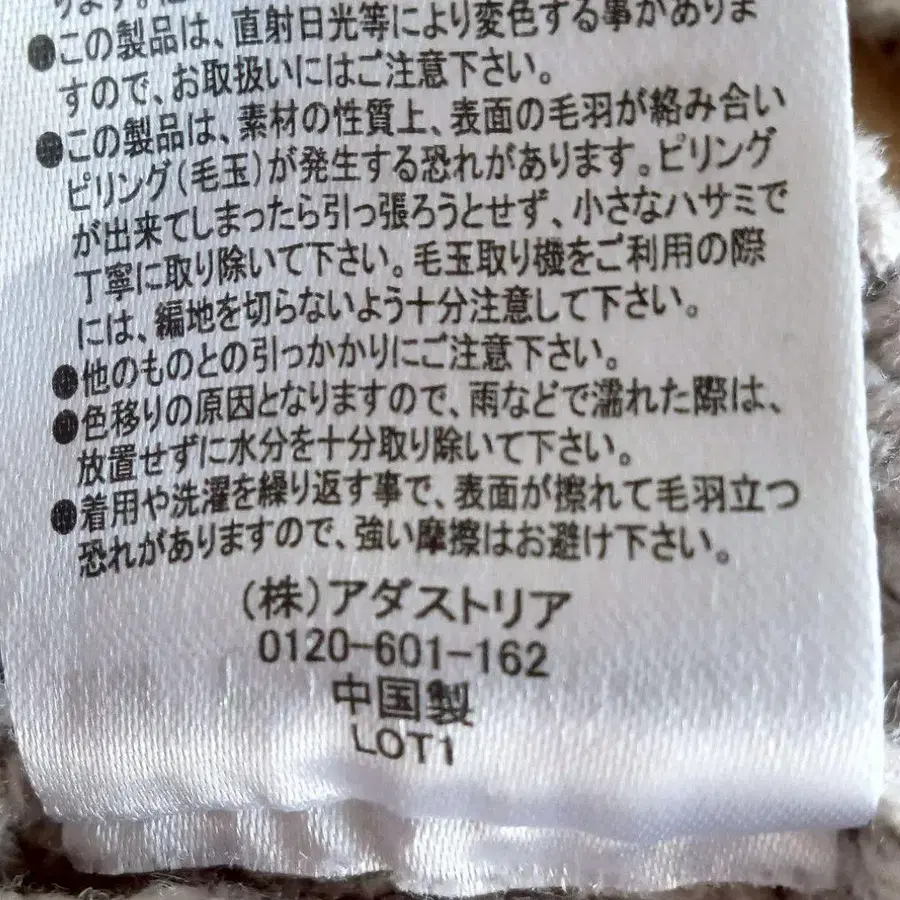 ります。
●この製品は、直射日光等により変色する事がありま
すので、お取扱いにはご注意下さい。
●この製品は、素材の性質上、表面の毛羽が絡み合い
ピリング(毛玉)が発生する恐れがあります。ピリング
が出来てしまったら引っ張ろうとせず、小さなハサミで
丁寧に取り除いて下さい。毛玉取り機をご利用の際
には、編地を切らないよう十分注意して下さい。
●他のものとの引っかかりにご注意下さい。
●色移りの原因となりますので、雨などで濡れた際は、
放置せずに水分を十分取り除いて下さい。
●着用や洗濯を繰り返す事で、表面が擦れて毛羽立つ
恐れがありますので、強い摩擦はお避け下さい。
(株)アダストリア
0120-601-162
中国製
LOT1